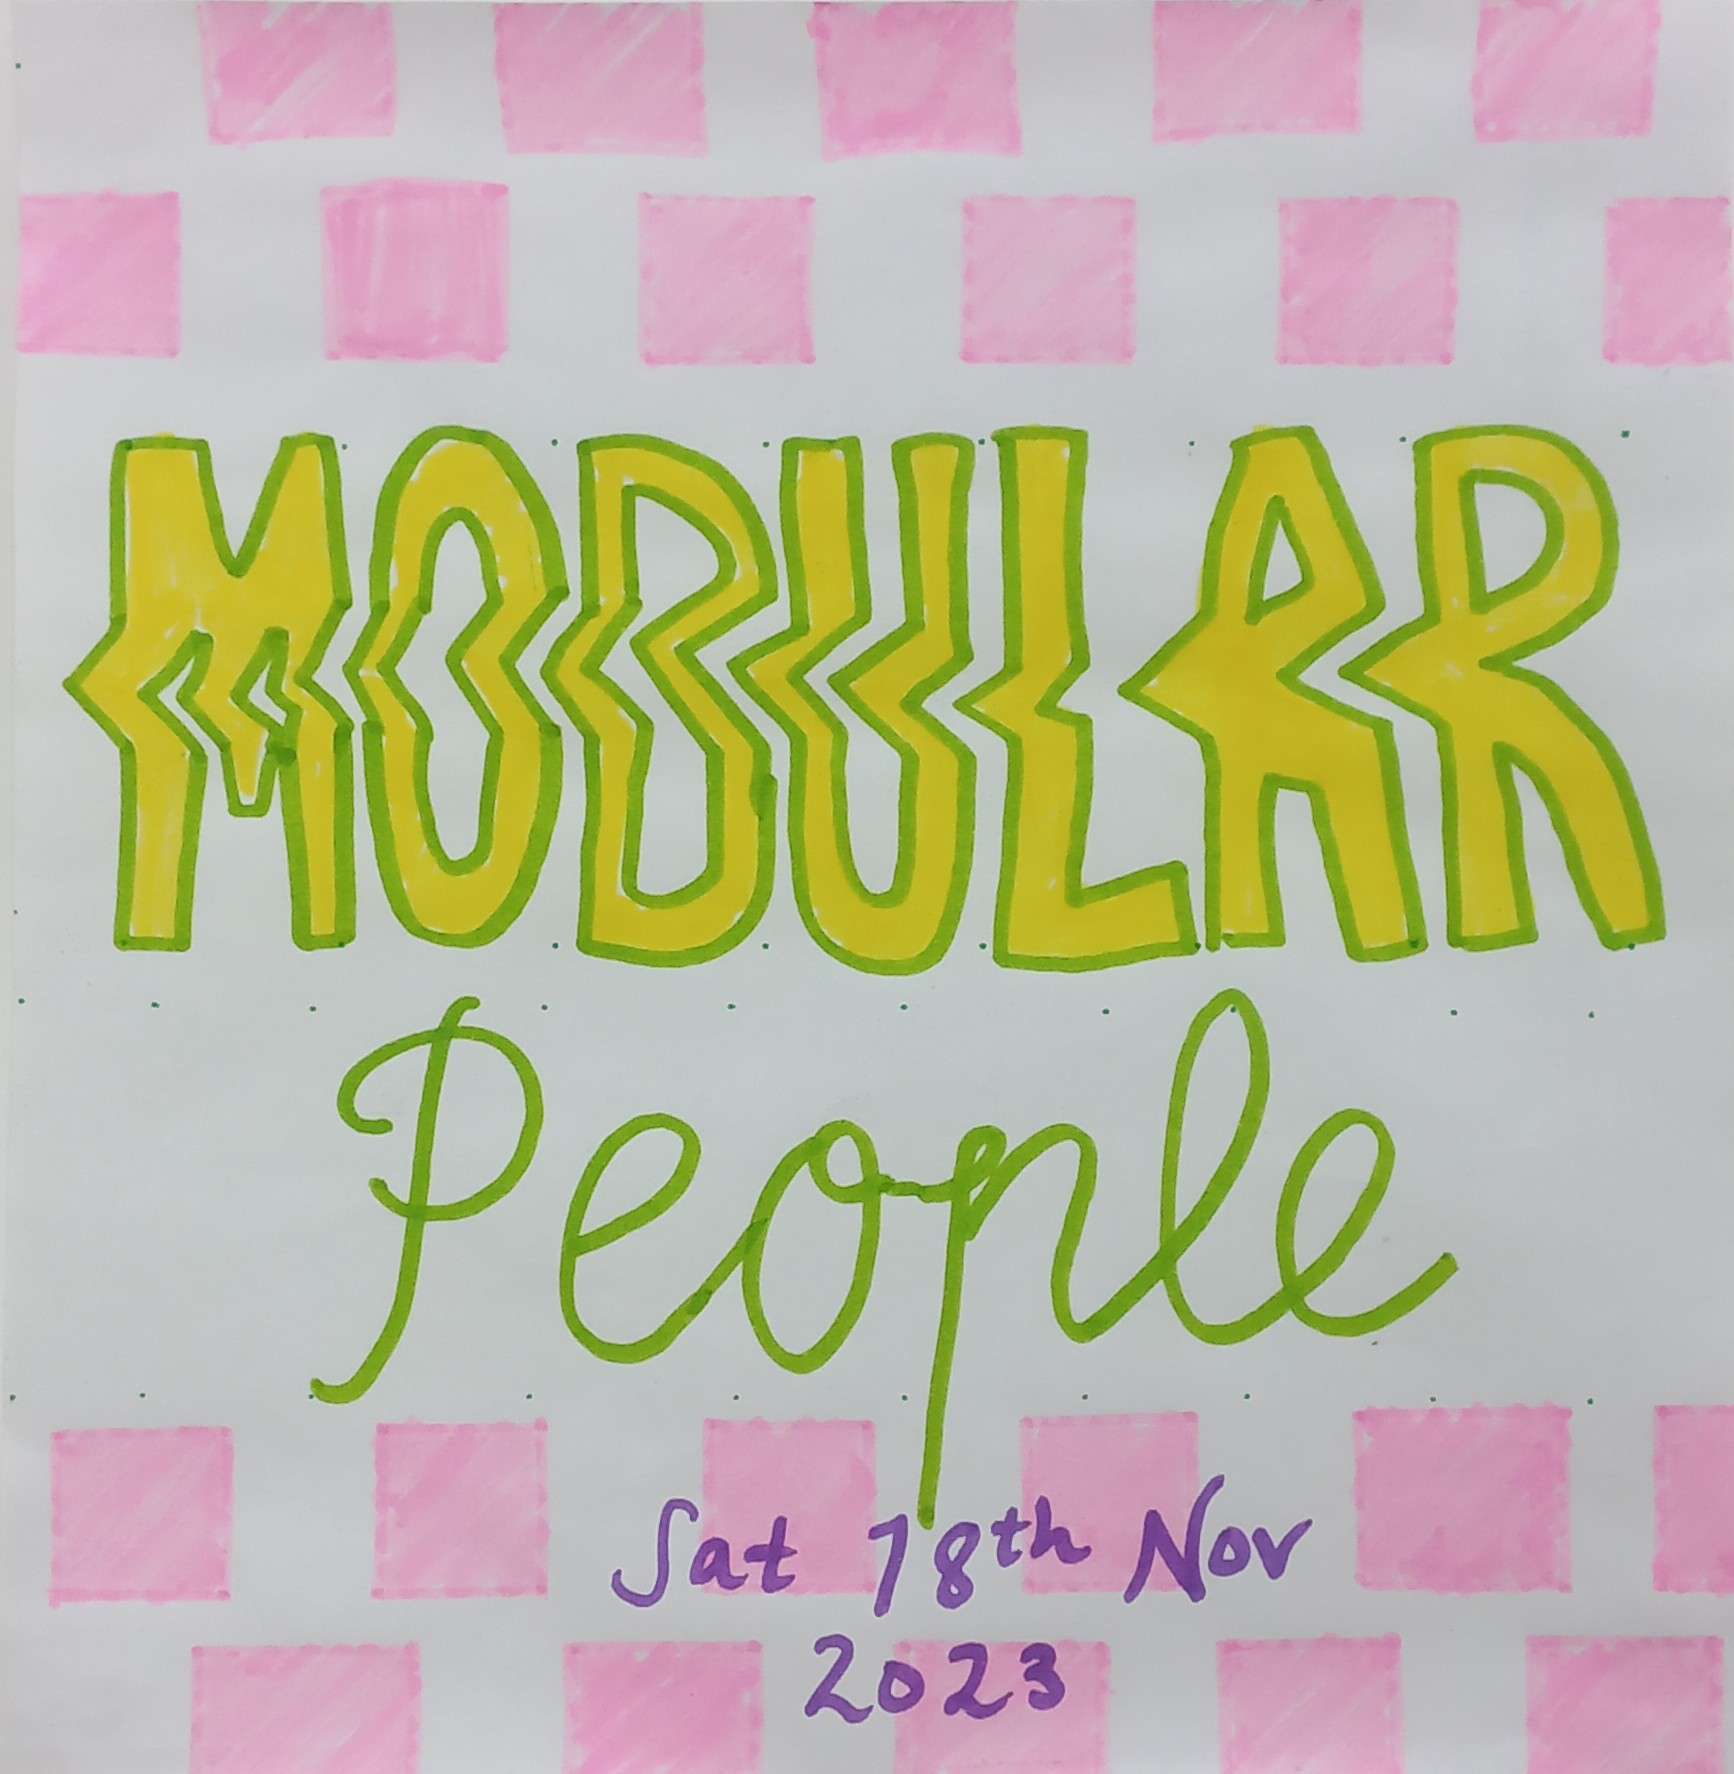 MODULAR
People
Sat 18th Nov
2023